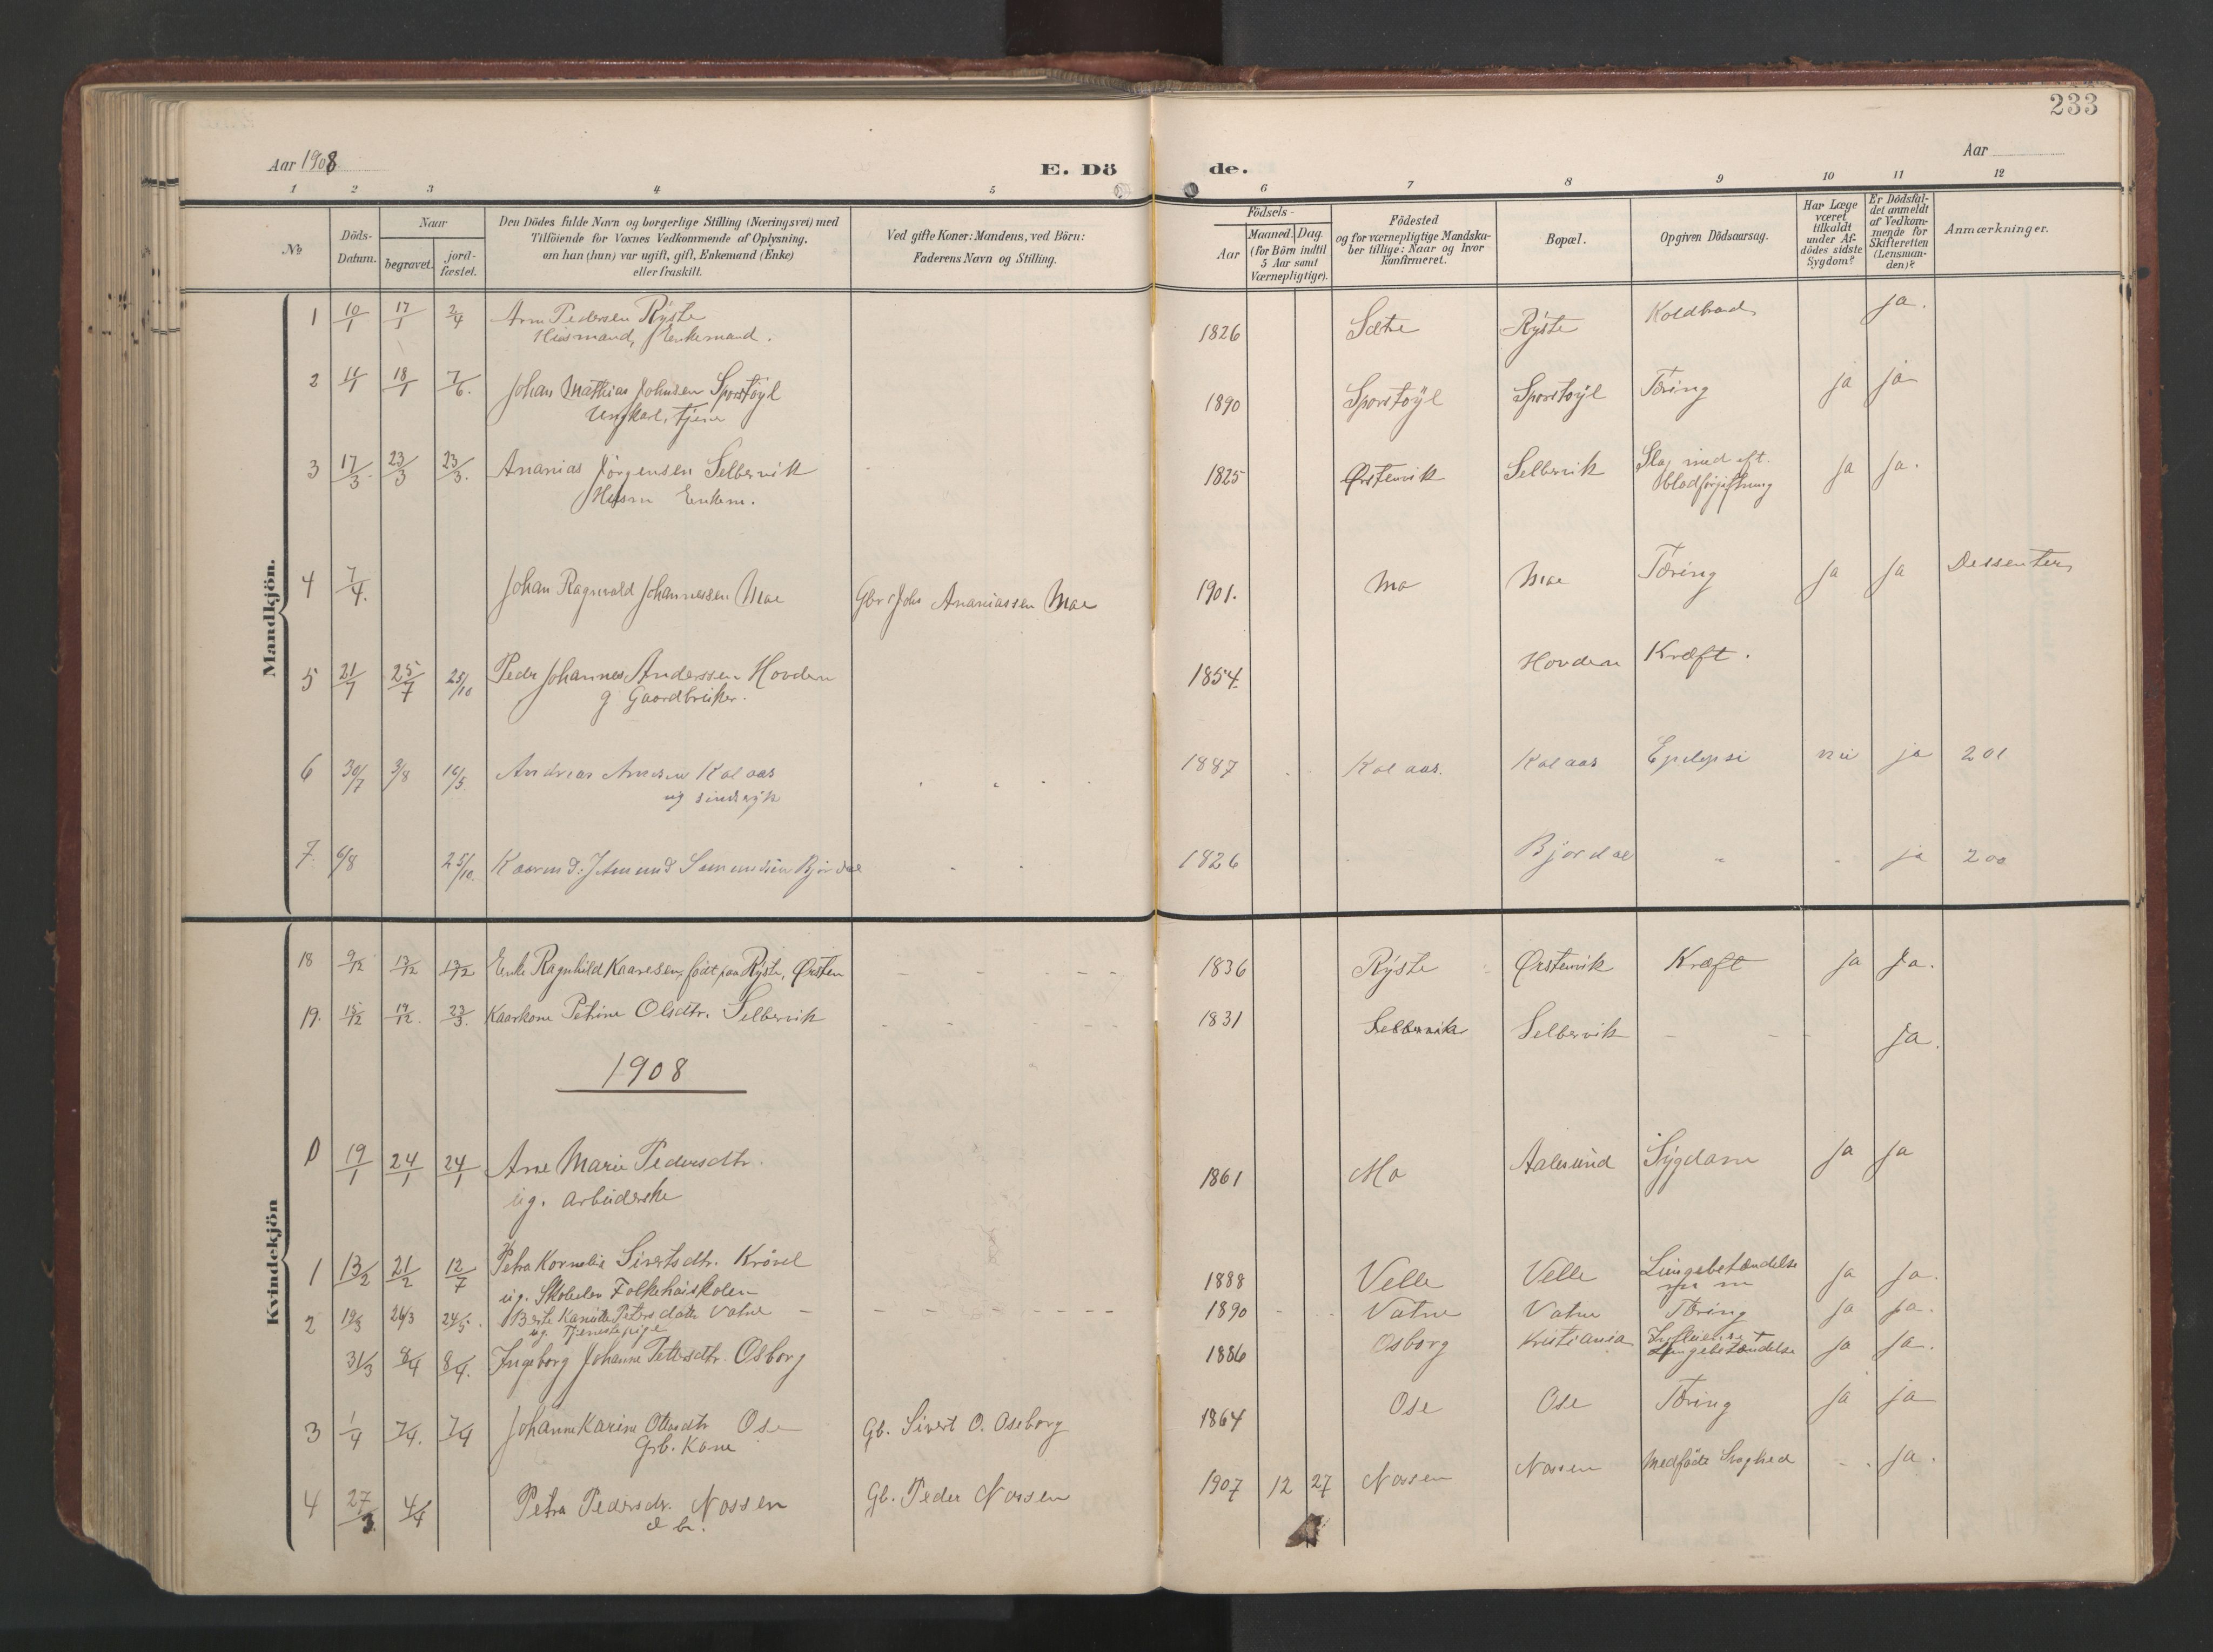 233
Aar 1908
E. Dö
de.
Aar
1 2 3 4 5 6 7 8 9 10 11 12
No
Döds-Datum.
Naar
begravet.
jord-fæstet.
Den Dödes fulde Navn og borgerlige Stilling (Næringsvei) med
Tilföiende for Voxnes Vedkommende af Oplysning,
om han (hun) var ugift, gift, Enkemand (Enke)
eller fraskilt.
Ved gifte Koner: Mandens, ved Börn:
Faderens Navn og Stilling.
Födsels-
Aar
Maaned. Dag.
(for Börn indtil
5 Aar samt
Værnepligtige).
Födested
og for værnepligtige Mandska-
ber tillige: Naar og hvor
konfirmeret.
Bopæl.
Opgiven Dödsaarsag.
Har Læge
været
tilkaldt
under Af-
dödes sidste
Sygdom?
Er Dödsfal-
det anmeldt
af Vedkom-
mende for
Skifteretten
(Lensman-
den)?
Anmærkninger.
Mandkjön.
1 10/1 17/1 3/4 Arne Pedersen Rÿste 1826 Sætre Rÿste Koldbrand ja.
Husmand, Enkemand.
2 11/1 18/1 7/6. Johan Mathias Johnsen Sporstøÿl 1890 Sporstøÿl Sporstøÿl Tæring ja ja
Ungkarl, tjener
3 17/3. 23/3 23/3. Ananias Jörgensen Selbervik 1825 Ørstenvik Selbervik Slag med eft. ja ja.
Husm Enkem. blodforgiftning
4 7/4. Johan Ragnvald Johannessen Moe Gbr Johs Ananiassen Moe 1901. Mo Moe Tæring ja ja Dessenter
5 21/7 25/7 25/10 Peder Johannes Anderssen Hovden 1854. Hovden Kræft.
g Gaardbruker.
6 30/7 3/8 16/5. Andreas Kolaas 1887 Kolaas. Kolaas Epilepsi nei ja 201
ug sindssyk
7. 6/8 25/10. Kaarmd: Bjørdal 1826 Bjørdal ja 200
Kvindekjön
18 9/12 13/12 13/12 Enke Ragnhild Kaaresen, født paa Rÿste, Ørsten 1836 Rÿste Ørstenvik Kræft ja ja.
19. 15/12 19/12. 23/3. Kaarkone Petrine Olsdtr. Selbervik 1831 Selbervik Selbervik ja.
1908
19/1 24/1 24/1 Ane Marie Pedersdtr. 1861 Mo Aalesund Sÿgdom ja ja
ug. arbeiderske
1 13/2 21/2 12/7 Petra Kornelie Sivertsdtr. Krövel 1888 Velle Velle Lungebetændelse ja ja.
ug. Skoleelev Folkehøiskolen
2 19/3 26/3 24/5. Berte Petersdatter Vatne 1890 Vatne Vatne Tæring ja ja.
ug. Tjenestepige
31/3 8/4 8/4. Ingeborg Johanne Pettersdtr. Osborg 1886 Osborg Kristiania Influensa + ja ja.
Lungebetændelse
3 1/4 7/4. 7/4 Johanne Karine Olsdtr Ose Gb. Sivert O. Oseborg 1864 Ose Ose Tæring ja ja
Grb. Kone
4 27/3. 4/4 Petra Pedersdr. Nossen Gb. Peder Nossen 1907 12 27 Nossen Nossen Medfödt Svaghed ja.